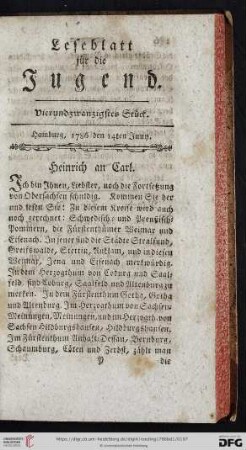 Leseblatt
für die
Jugend.
Vierundzwanzigstes Stück.
Hamburg, 1786 den 14ten Juny.
Heinrich an Carl.
Ich bin Ihnen, Liebster, noch die Fortsetzung
von Obersachsen schuldig. Kommen Sie her
und lesen Sie: Zu diesem Kreise wird auch
noch gerechnet: Schwedisch- und Preußisch-
Pommern, die Fürstenthümer Weimar und
Eisenach. In jener sind die Städte Stralsund,
Greifswalde, Stettin, Anklam, und in diesen
Weimar, Jena und Eisenach merkwürdig.
In dem Herzogthum von Coburg und Saal-
feld, sind Coburg, Saalfeld und Altenburg zu
merken. In dem Fürstenthum Gotha, Gotha
und Altenburg. Im Herzogthum von Sachsen-
Meinungen, Meinungen, und im Herzogth. von
Sachsen Hildburgshausen, Hildburgshausen.
Im Fürstenthum Anhalt-Dessau, Bernburg,
Schaumburg, Cöten und Zerbst, zählt man
P die
DFG